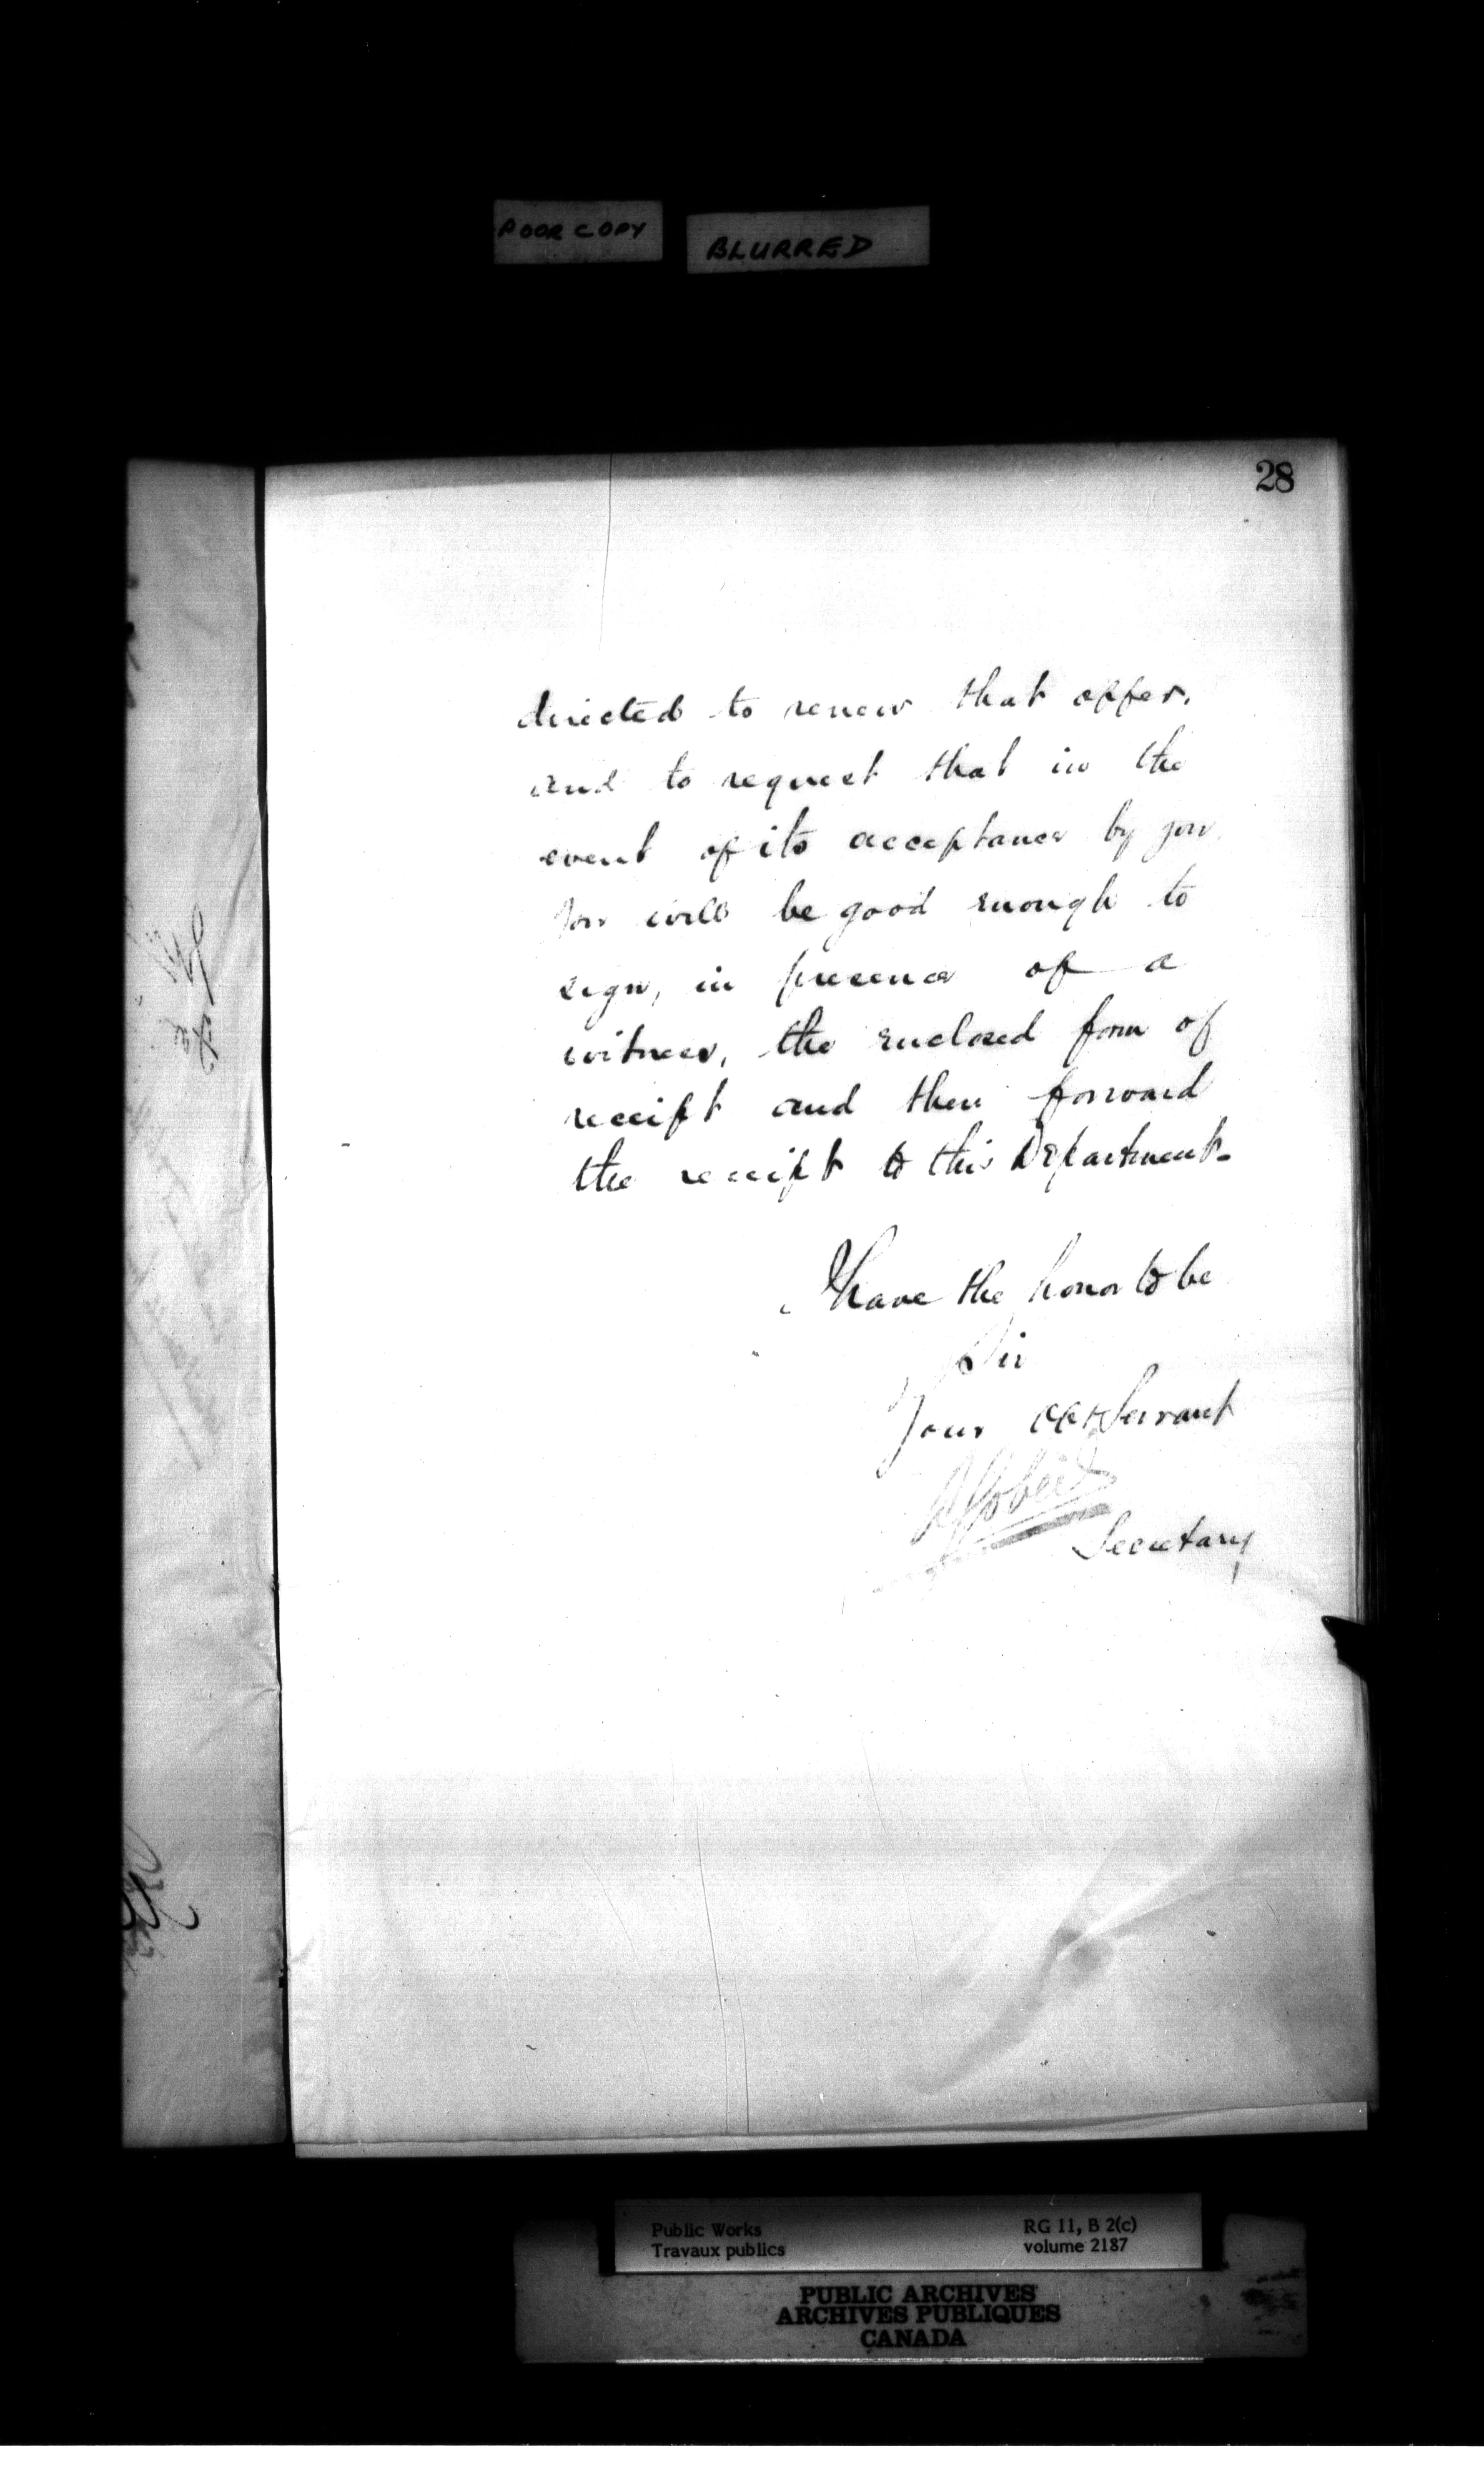 POOR COPY BLURRED
28
directed to renew that offer,
and to request that in the
event of its acceptance by you
you will be good enough to
sign, in presence of a
witness, the enclosed form of
receipt and then forward
the receipt to this Department.
I have the honor to be
Sir
Your Servant
Secretary
Public Works
Travaux publics
RG 11, B 2(c)
volume 2187
PUBLIC ARCHIVES
ARCHIVES PUBLIQUES
CANADA